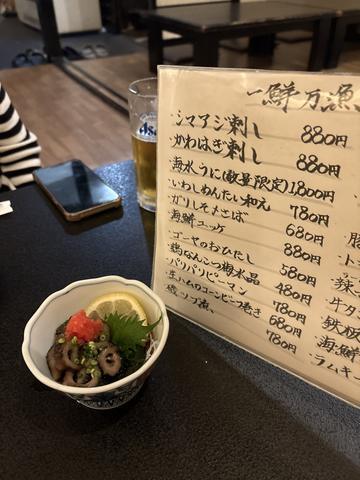 一鮮万漁
・シマアジ刺し 880円
・かわはぎ刺し 880円
・海水うに(数量限定) 1,800円
・いわしめんたい和え 780円
・ガリしそさば 680円
・海鮮ユッケ 880円
・ゴーヤのおひたし 580円
・鶏なんこつ梅水晶 480円
・パリパリピーマン 780円
・生ハムのコーンビーフ巻き 680円
・磯ツブ煮 780円
・牛タン
・鉄板
・海鮮
・ラムキ
Asa